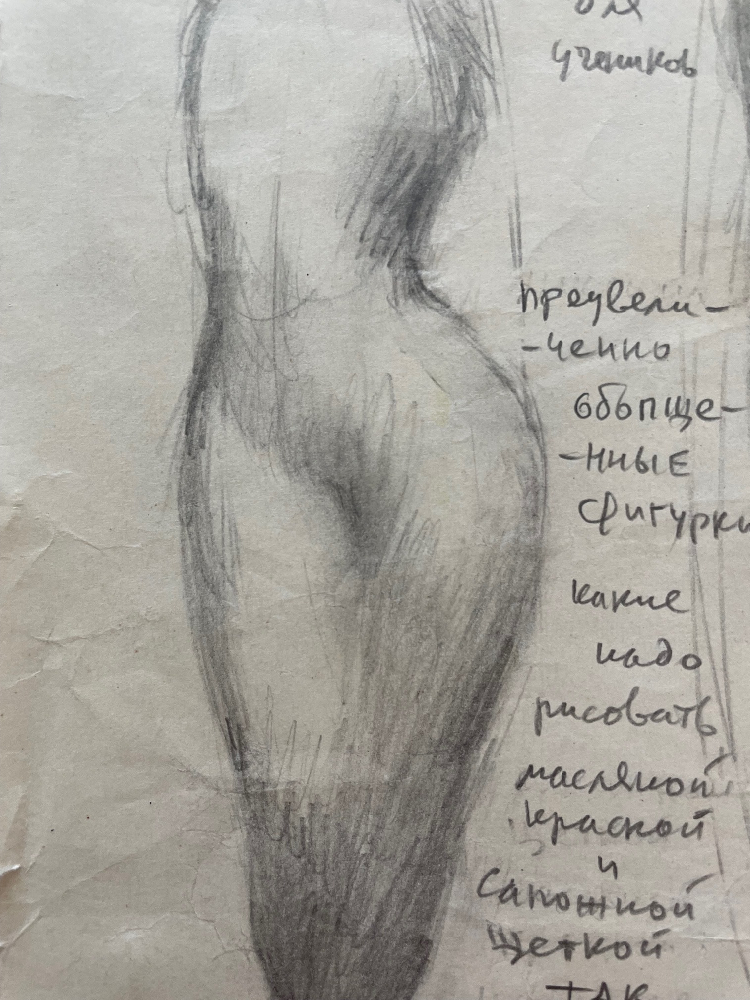 для
учеников
преувели-
-ченно
обобще-
-нные
фигурки
какие
надо
рисовать
масляной
краской
и
сапожной
щеткой
так